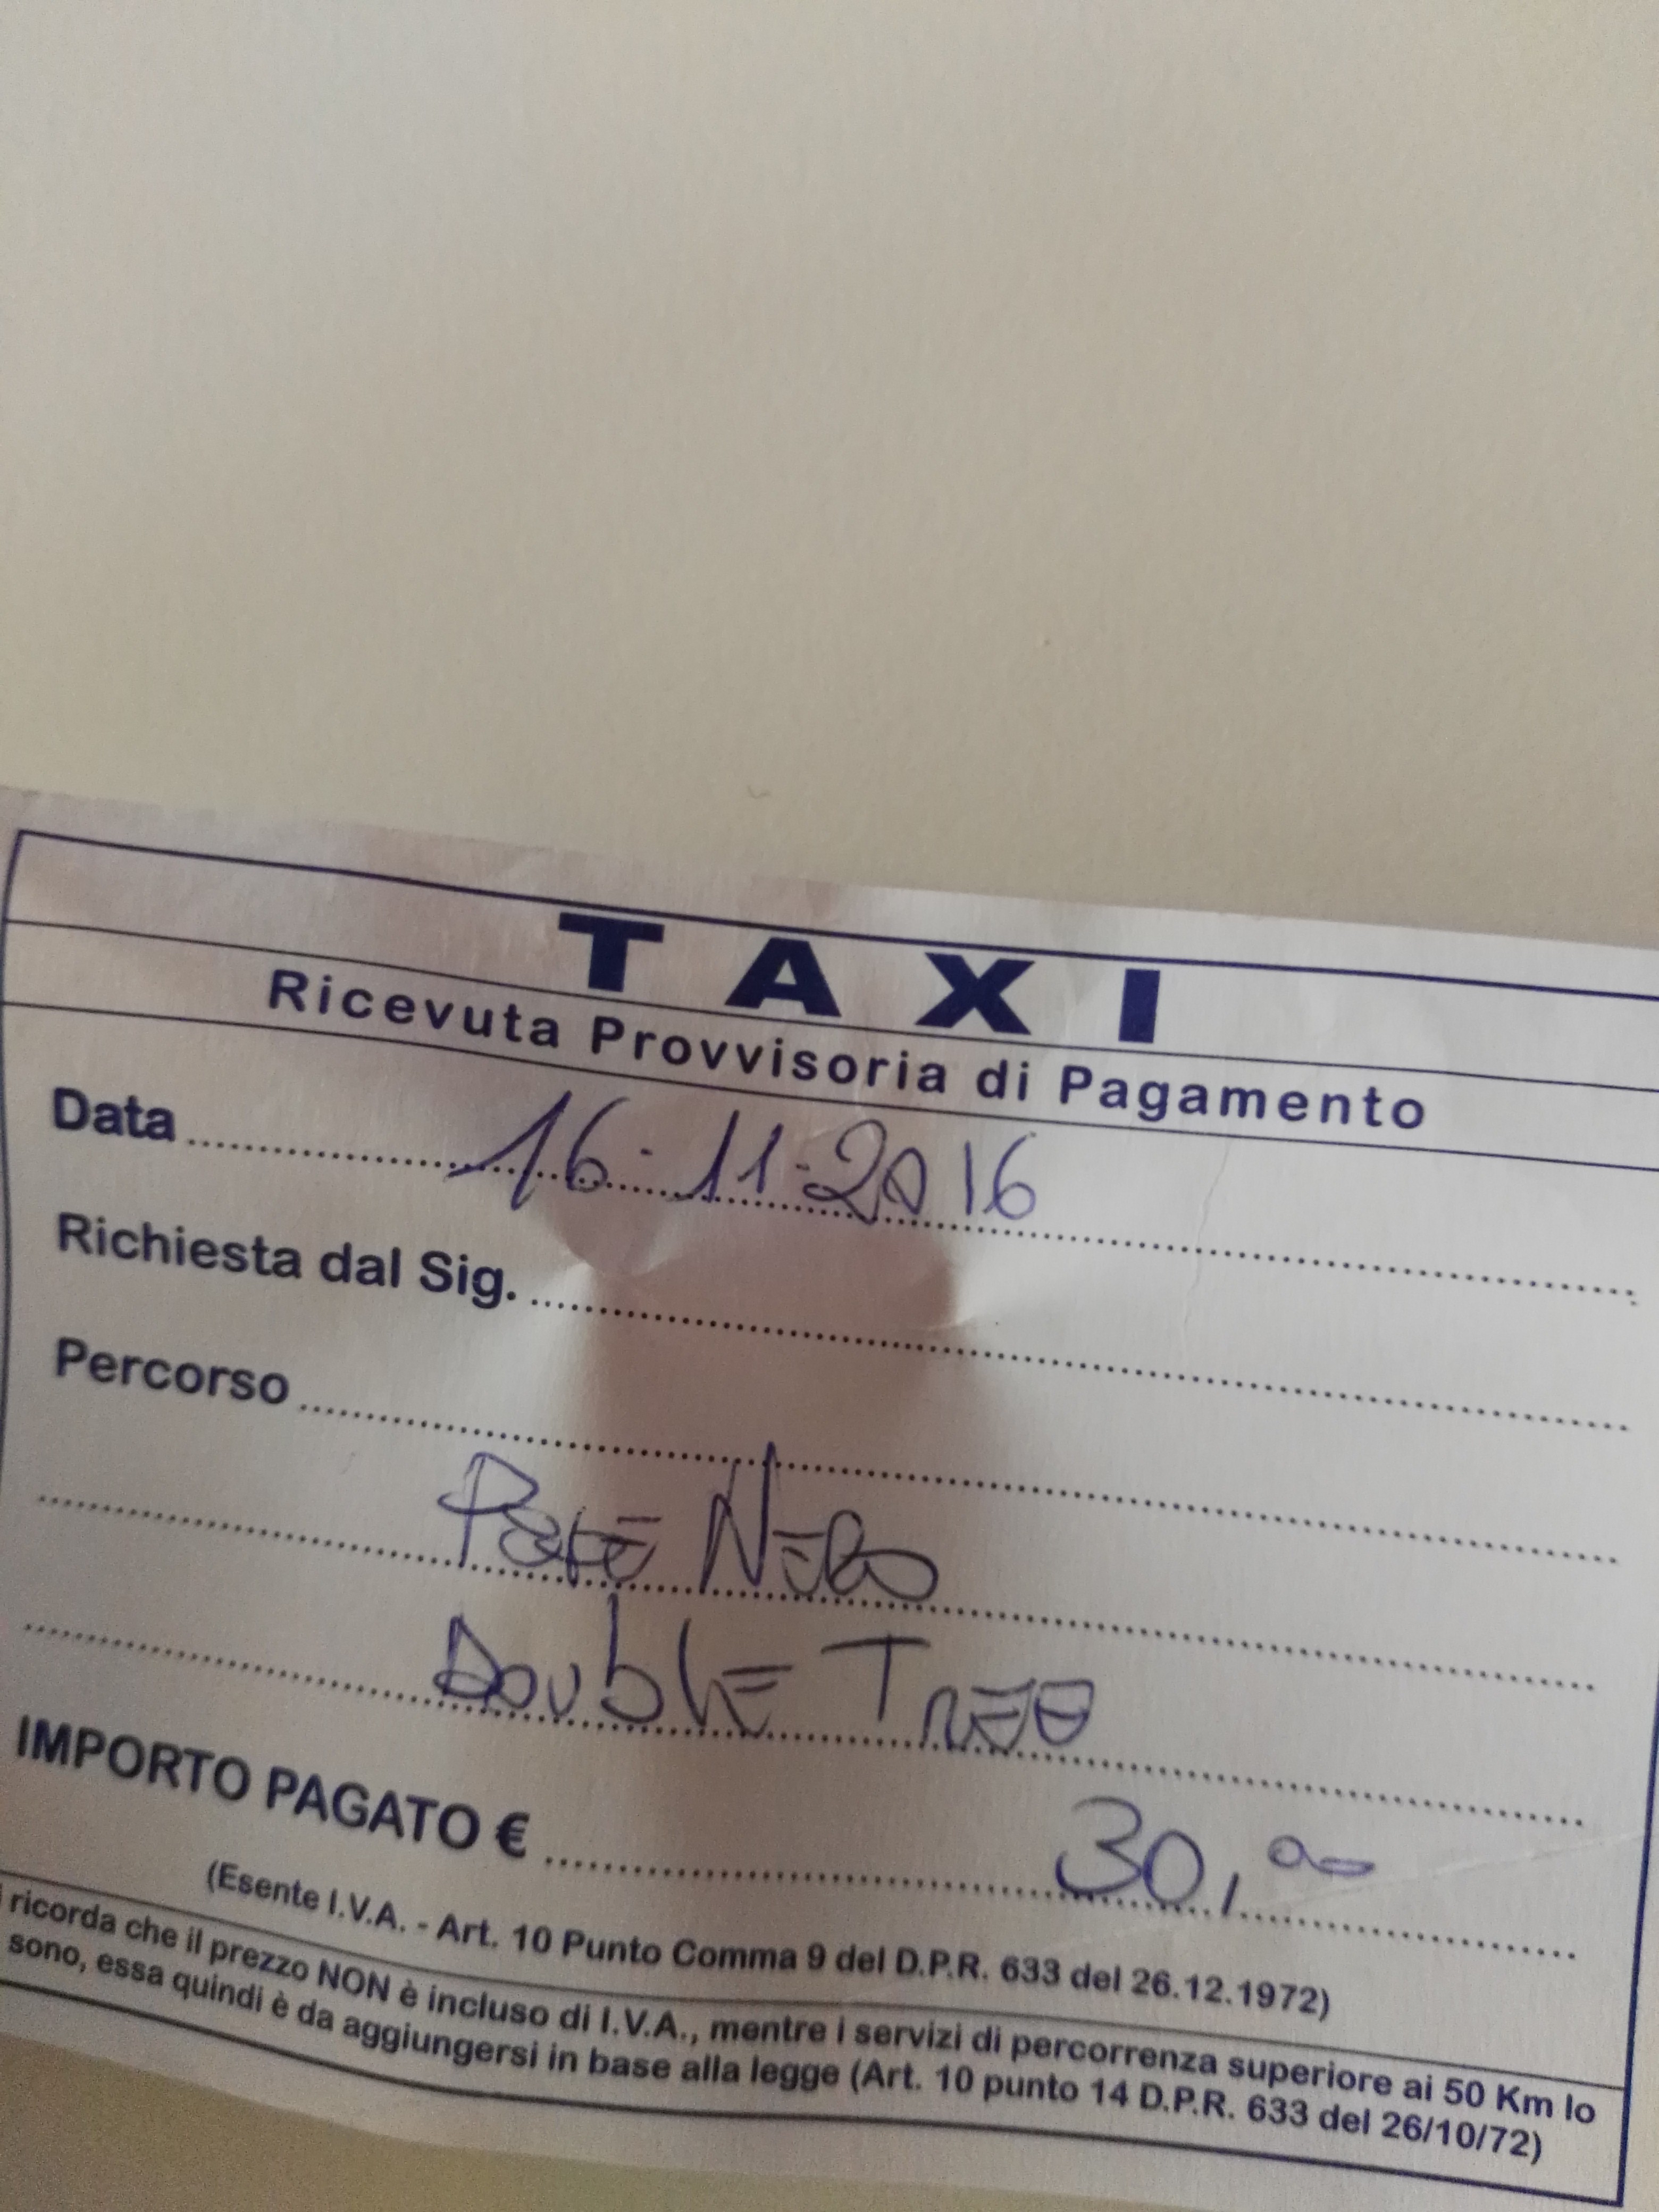 TAXI
Ricevuta Provvisoria di Pagamento
Data 16·11·2016
Richiesta dal Sig.
Percorso
Double Tree
IMPORTO PAGATO € 30,00
(Esente I.V.A. - Art. 10 Punto Comma 9 del D.P.R. 633 del 26.12.1972)
ricorda che il prezzo NON è incluso di I.V.A., mentre i servizi di percorrenza superiore ai 50 Km lo
sono, essa quindi è da aggiungersi in base alla legge (Art. 10 punto 14 D.P.R. 633 del 26/10/72)